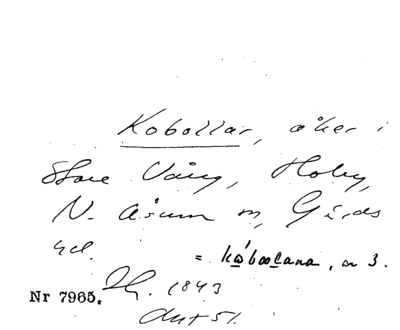 Kobollar, åker i
Store Vång, Hoby,
N. Åsum sn, Gärds
hd.
= kåboḷana, n 3.
Nr 7965. Lh. 1843
Akt 51.